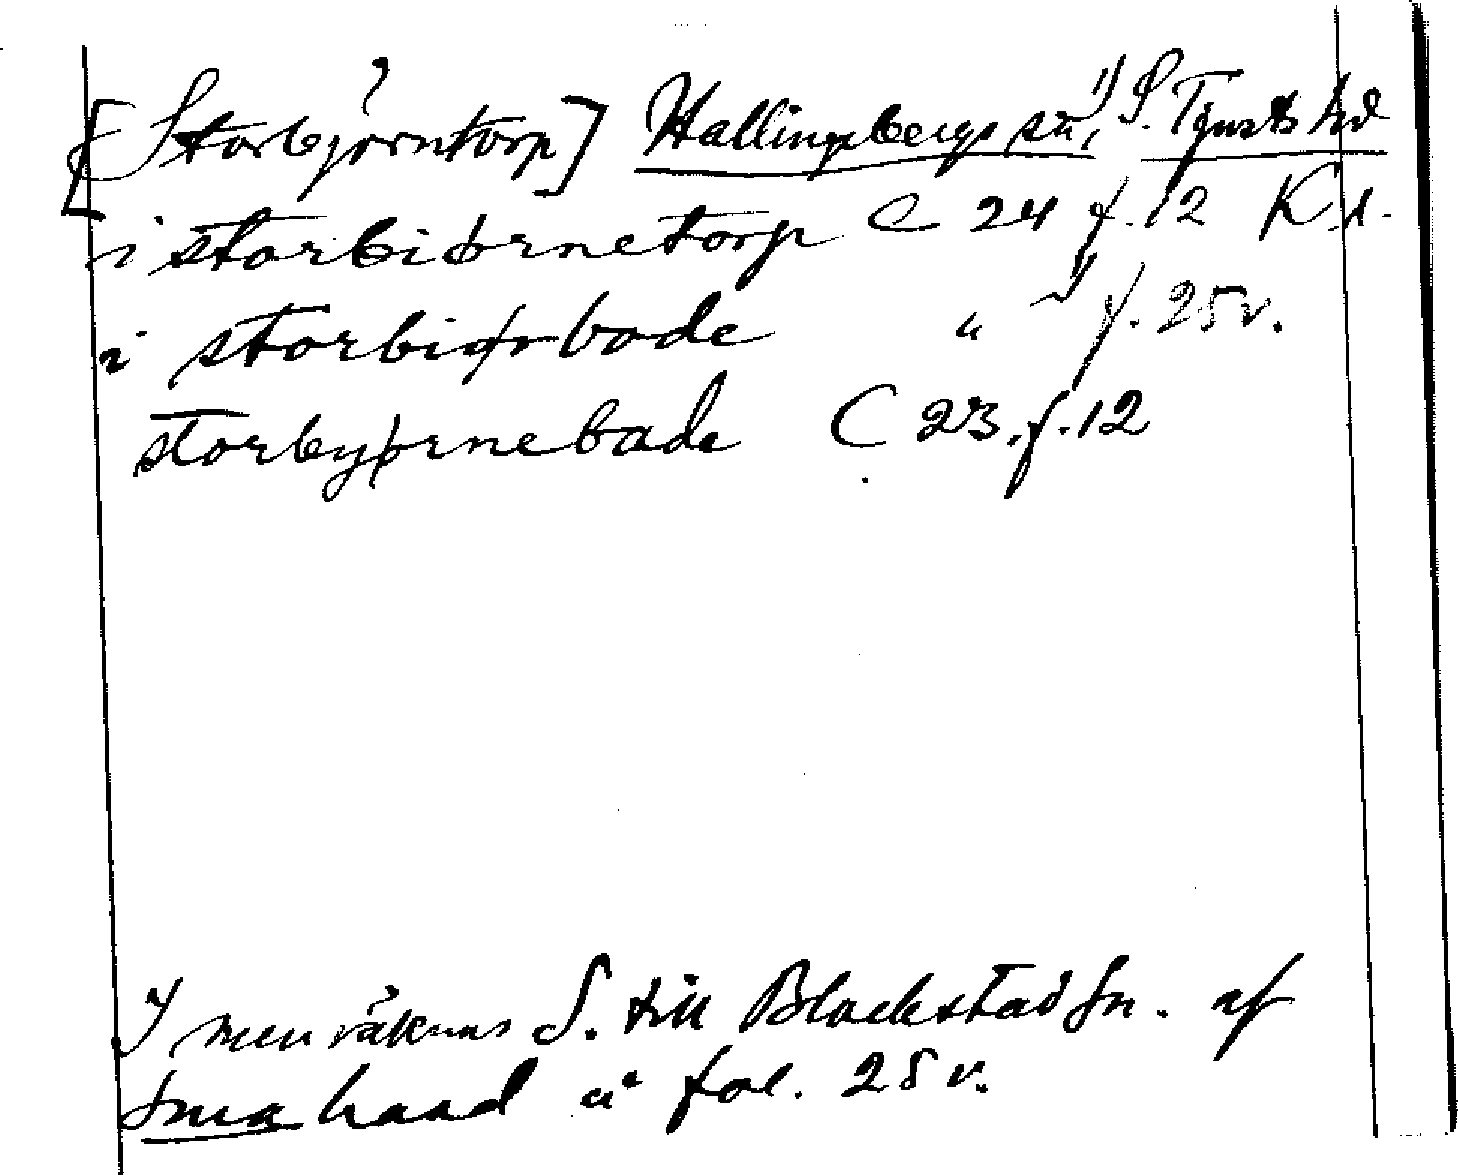 [Storbjörntorp] Hallingebergs sn,¹⁾ S. Tjusts hd
i storbiørnetorp C 24 f. 12 K.l.
i storbiørbode " ¹⁾ f. 25v.
storbyørnebode C 23. f. 12
¹⁾ men räknas S. till Blackstad sn. af
sma haad å fol. 25 v.